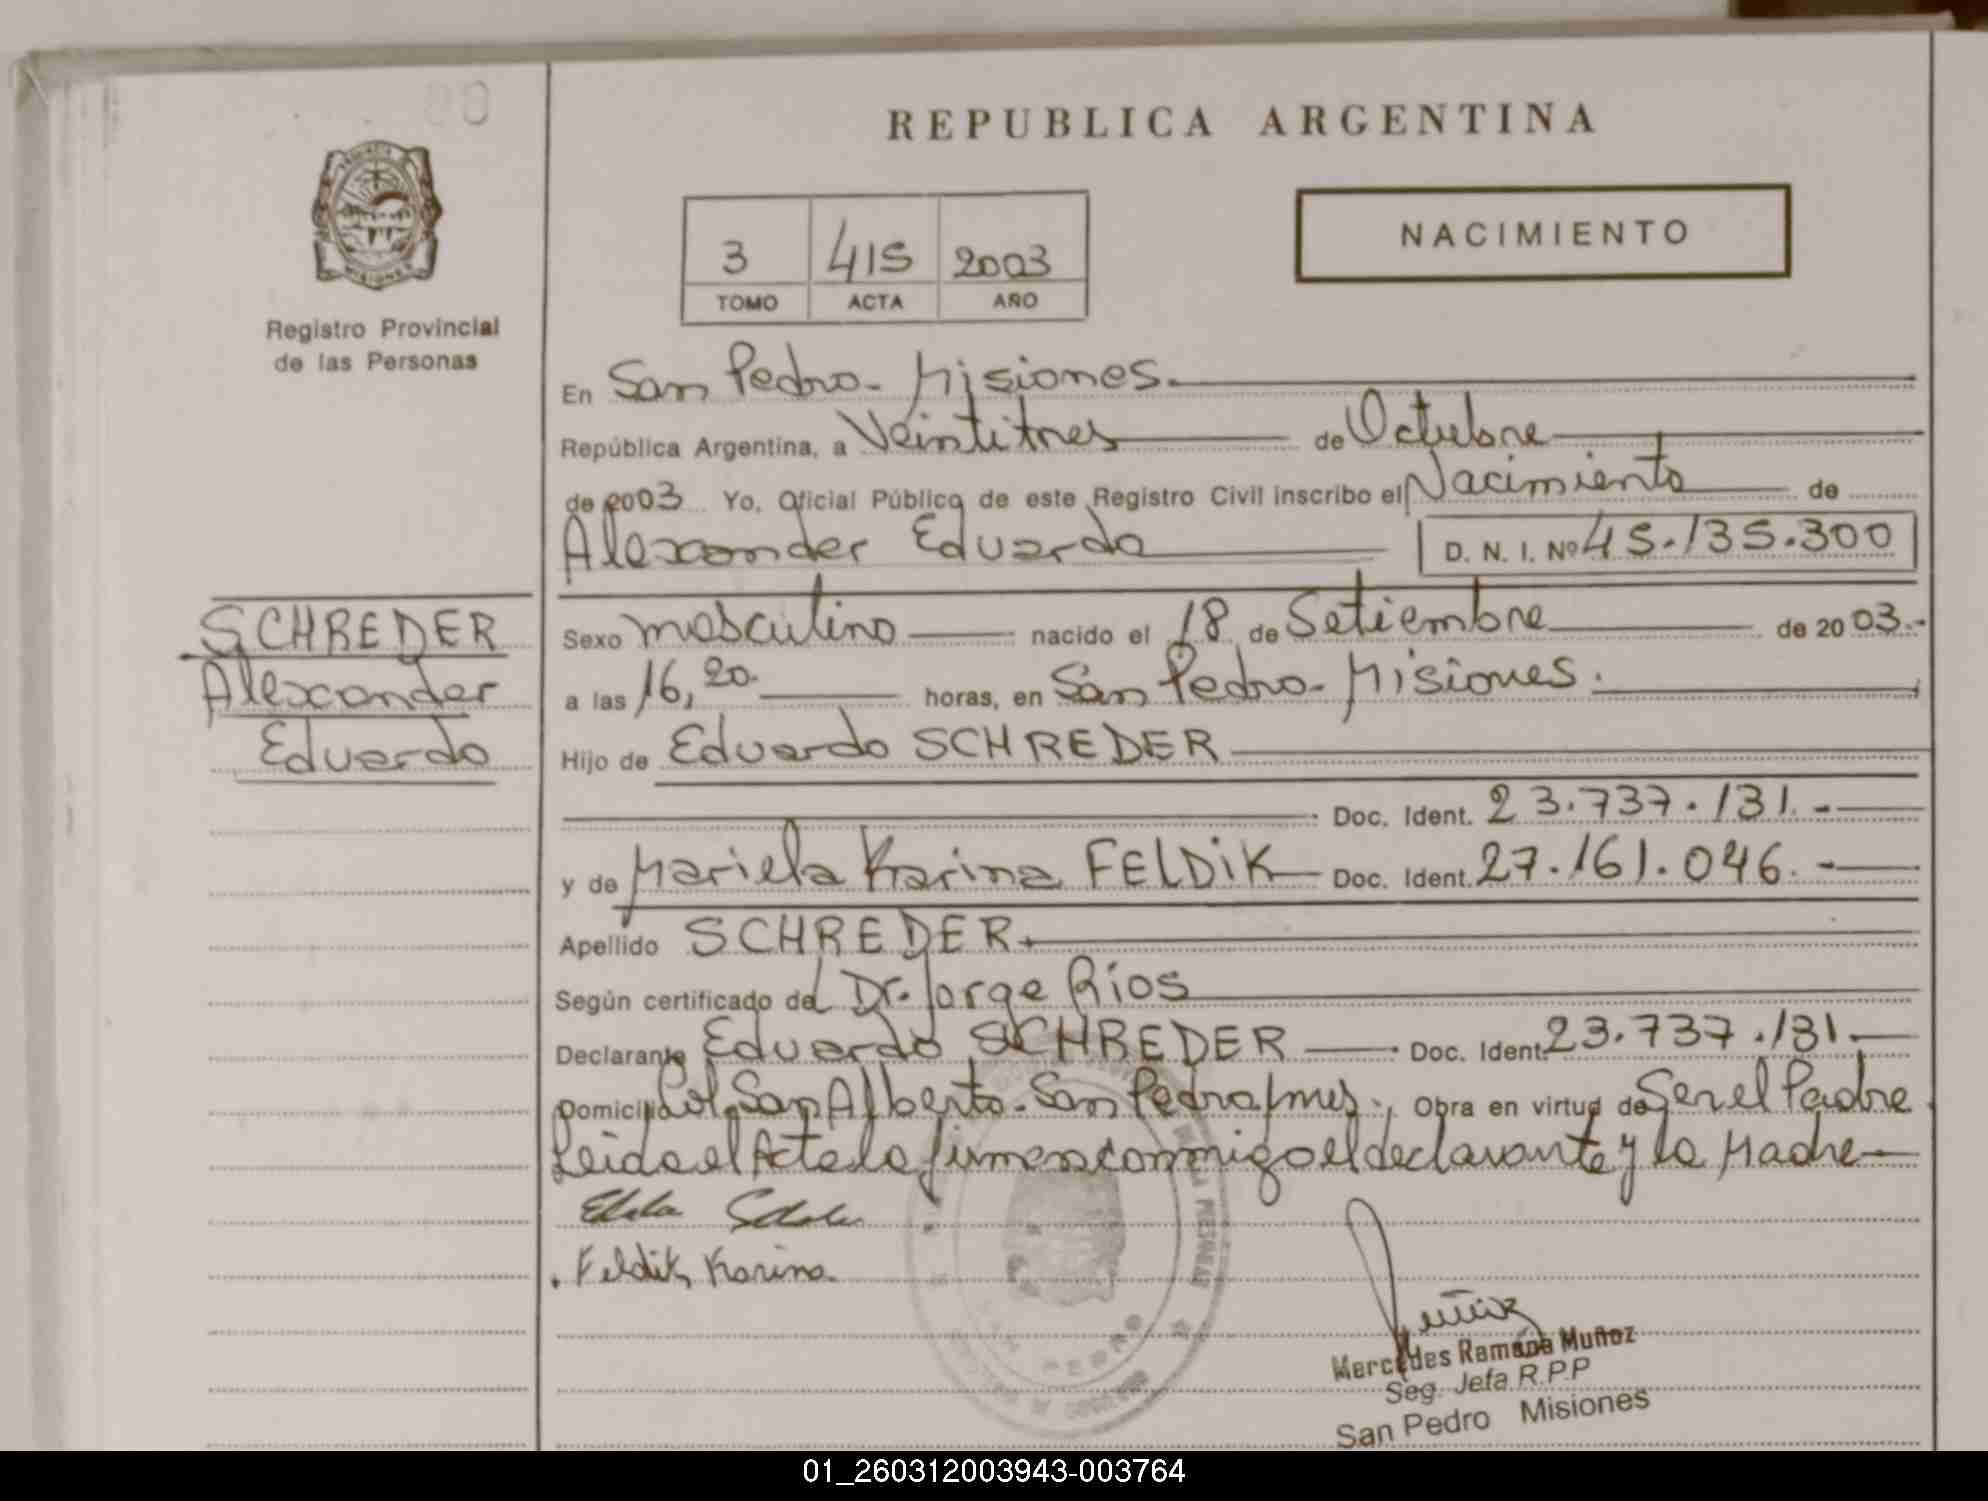 REPUBLICA ARGENTINA
NACIMIENTO
3 415 2003
TOMO ACTA AÑO
PROVINCIA DE
MISIONES
Registro Provincial
de las Personas
En San Pedro - Misiones.
República Argentina, a Veintitres de Octubre
de 2003 Yo, Oficial Público de este Registro Civil inscribo el Nacimiento de
Alexander Eduardo D. N. I. Nº 45.135.300
SCHREDER
Alexander
Eduardo
Sexo masculino nacido el 18 de Setiembre de 2003.-
a las 16,20. horas, en San Pedro - Misiones.
Hijo de Eduardo SCHREDER
Doc. Ident. 23.737.131.-
y de Mariela Karina FELDiK Doc. Ident. 27.161.046.-
Apellido SCHREDER.
Según certificado del Dr. Jorge Ríos
Declarante Eduardo SCHREDER Doc. Ident. 23.737.131.-
Domicilio Col. San Alberto - San Pedro, mnes., Obra en virtud de Ser el Padre
Leida el Acta la firman conmigo el declarante y la Madre
Feldik Karina
Mercedes Ramona Muñoz
Seg. Jefa R.P.P
San Pedro Misiones
01_260312003943-003764